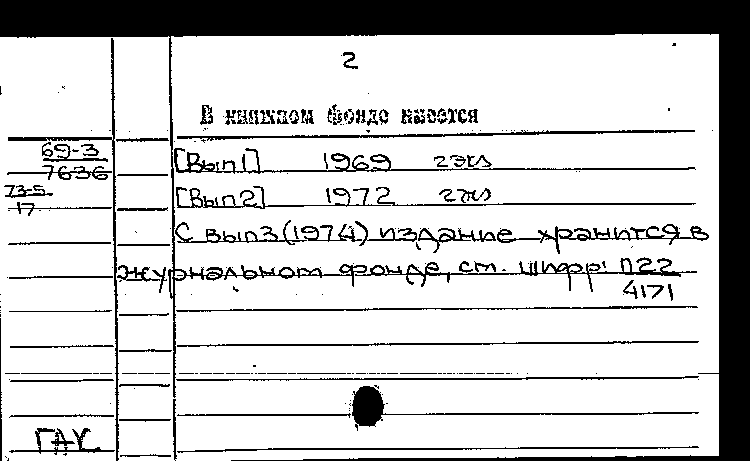 2
В книжном фонде имеется
69-3
7636
[Вып1] 1969 2 экз
73-5
17
[Вып2] 1972 2 экз
С вып3 (1974) издание хранится в
журнальном фонде, ст. шифр: П22
4171
ГАК